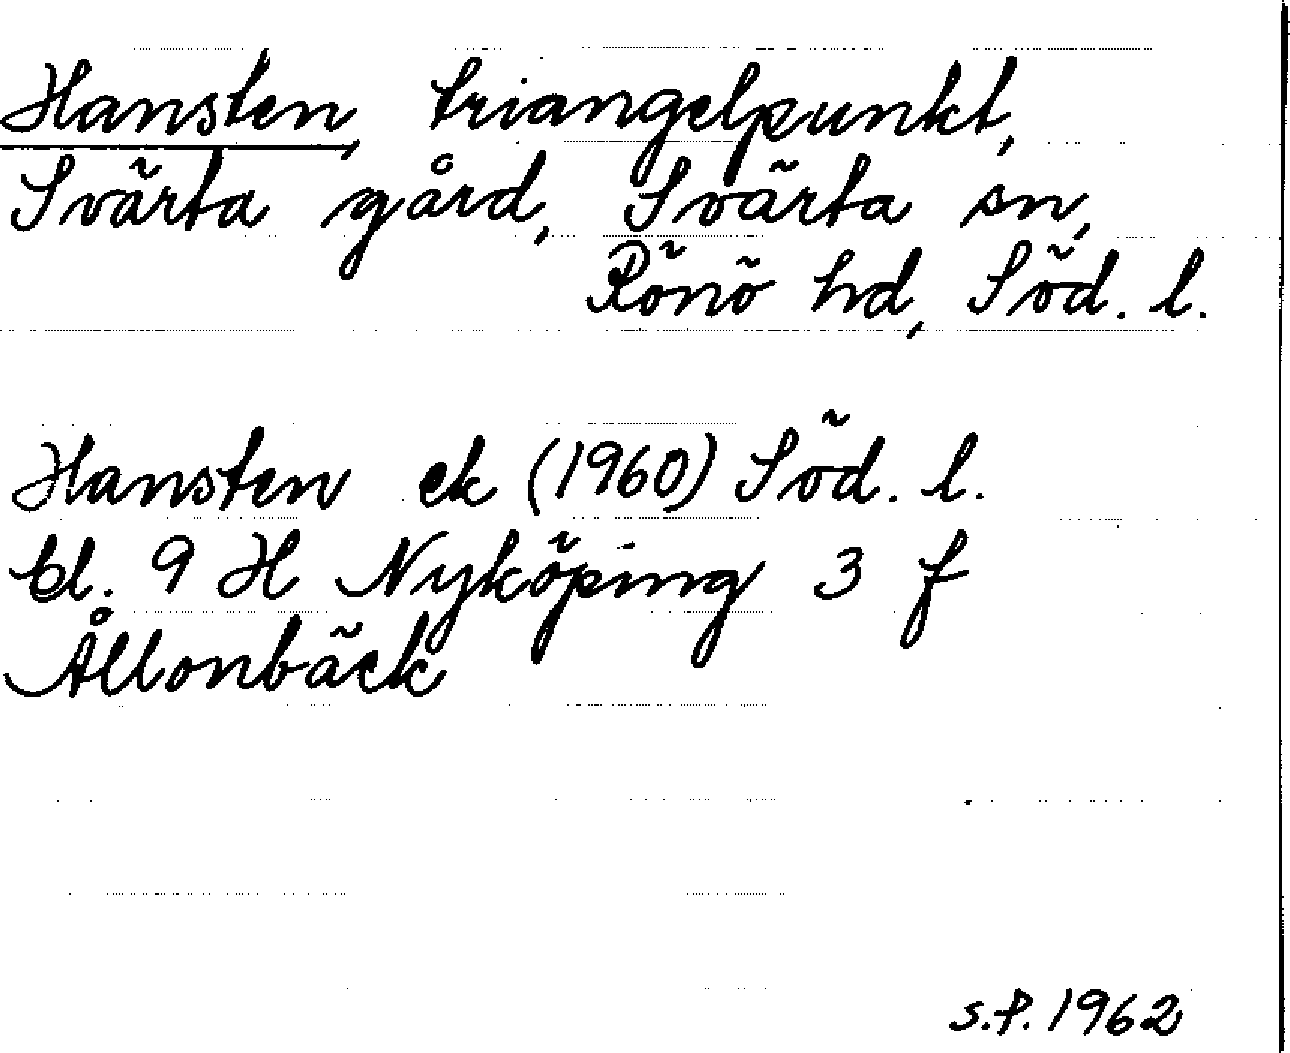 Hansten, triangelpunkt,
Svärta gård, Svärta sn,
Rönö hd, Söd. l.
Hansten ek (1960) Söd. l.
bl. 9 H Nyköping 3 f
Ållonbäck
S.P. 1962